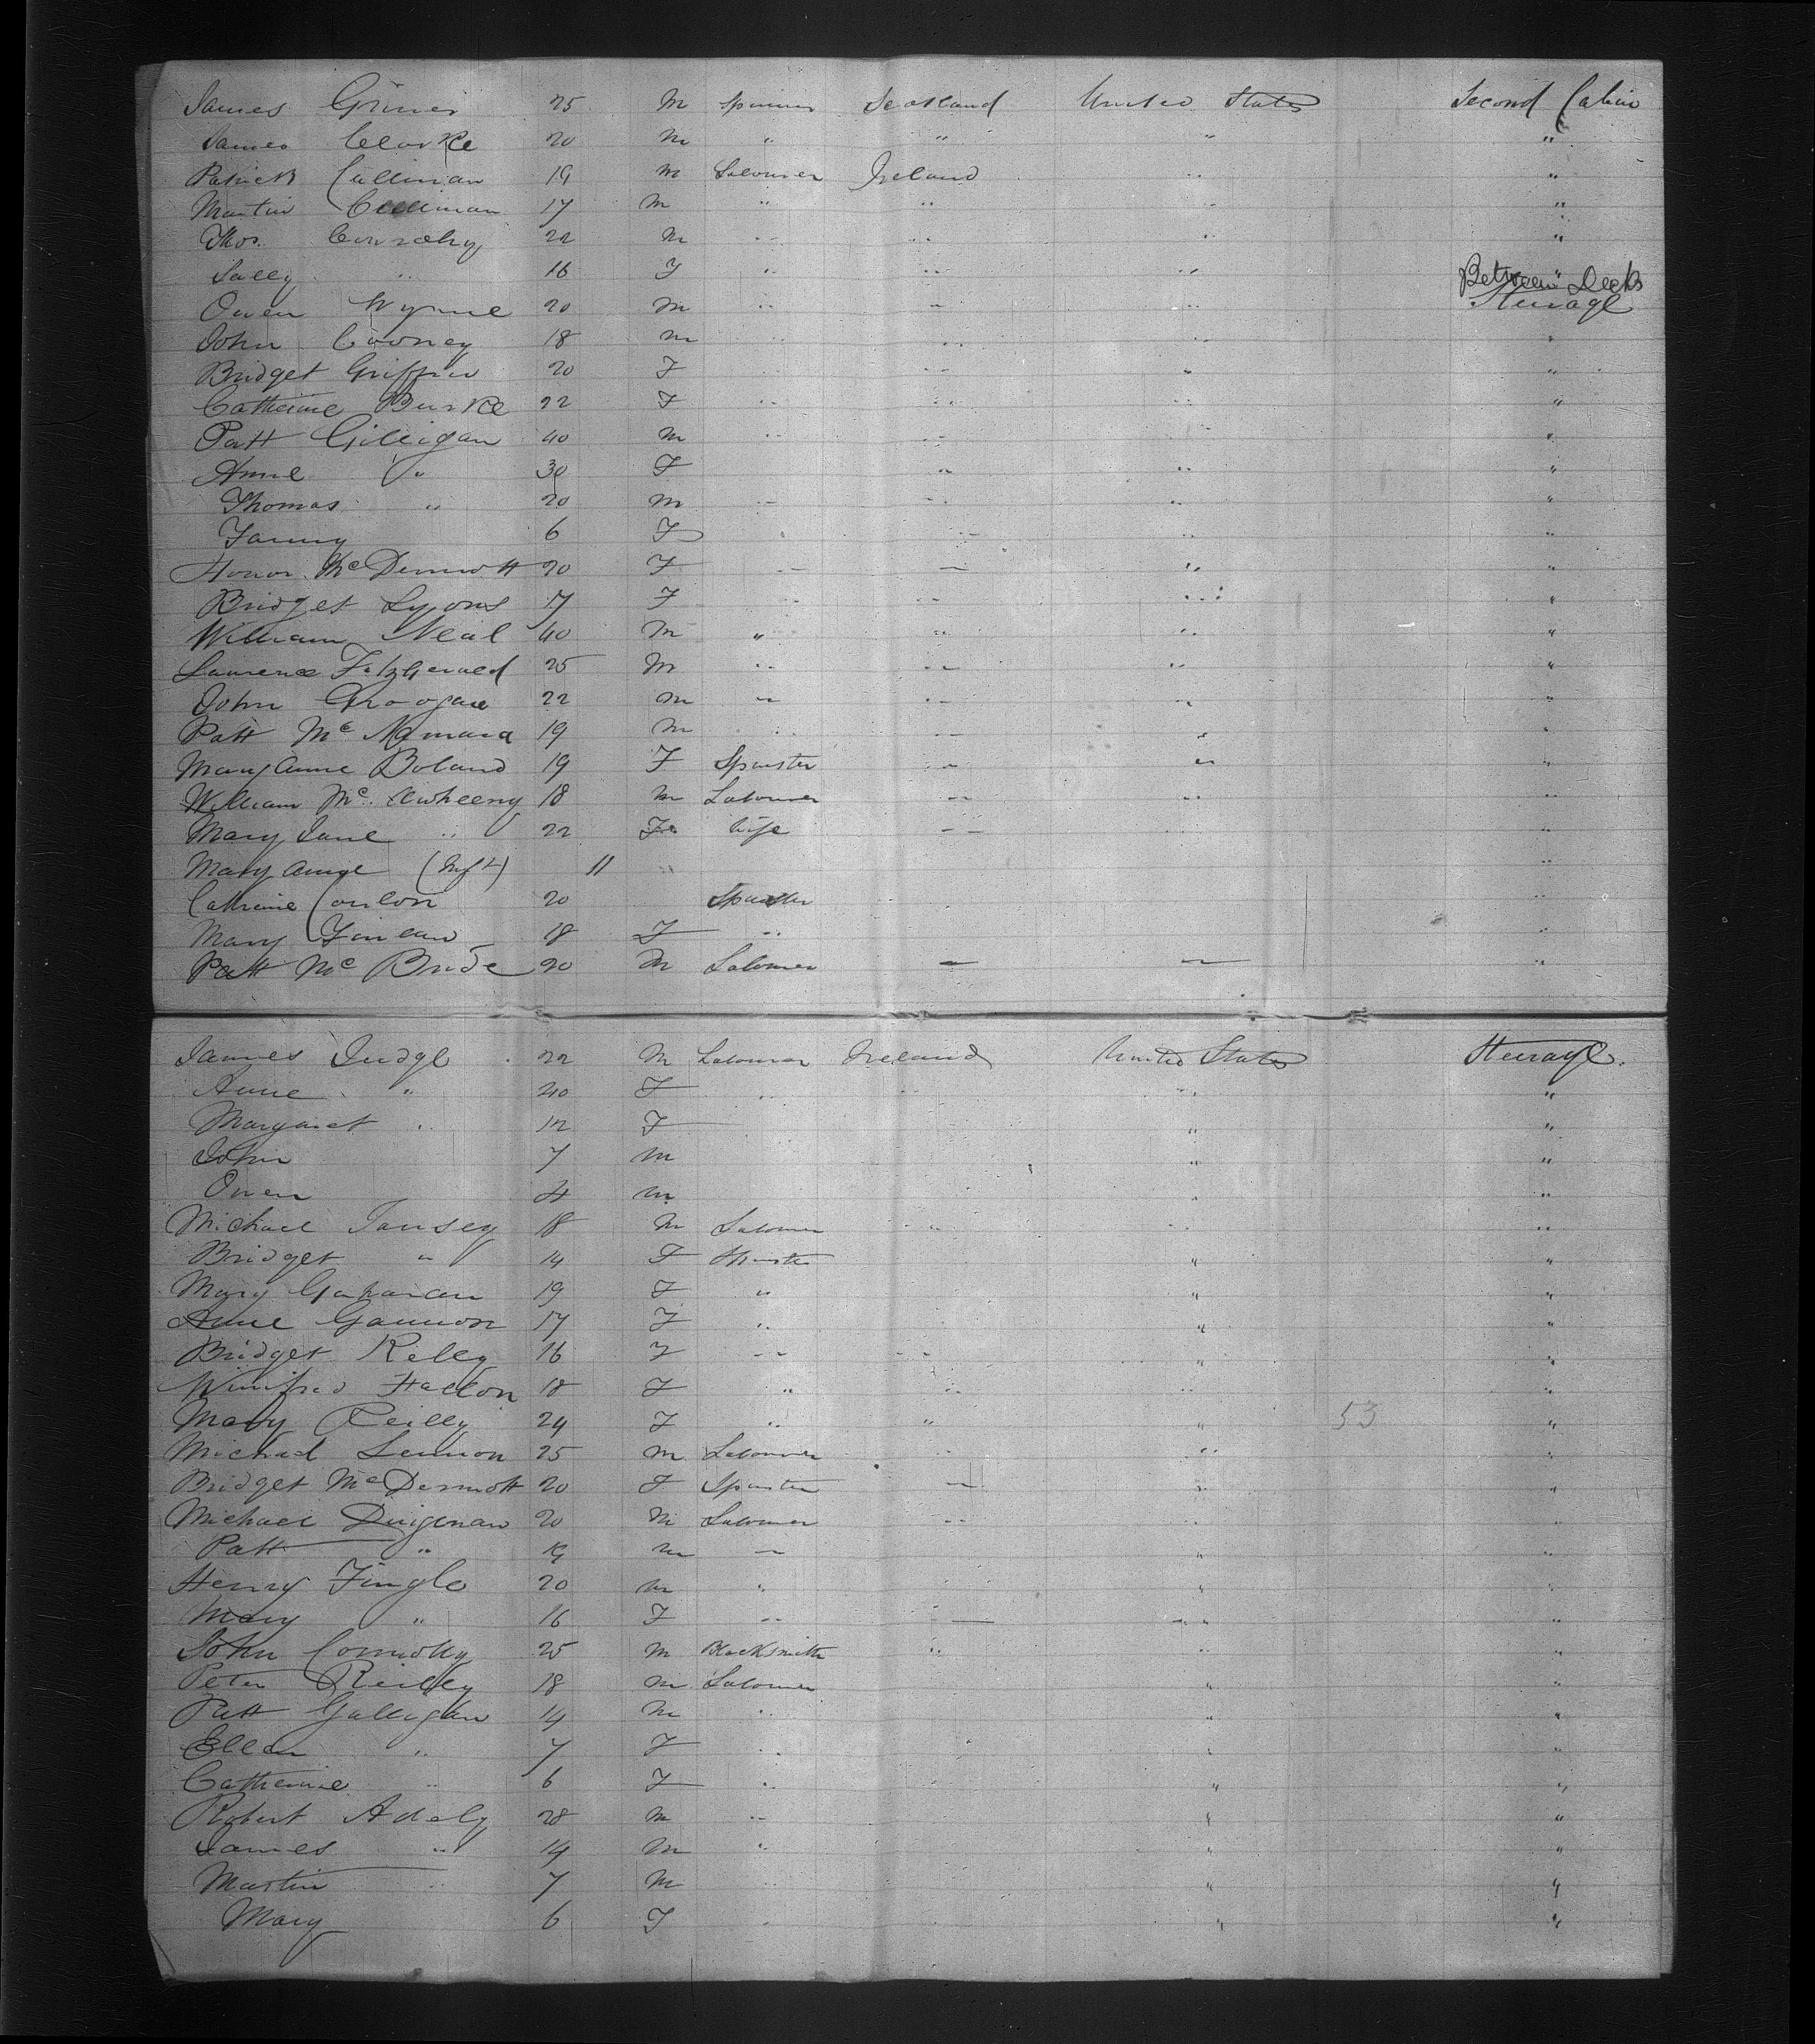 James Grimes 25 M Spinner Scotland United States Second Cabin
James Clarke 20 M " " " "
Patrick Cullinan 19 M Labourer Ireland " "
Martin Cullinan 17 M " " " "
Thos. 22 M " " " "
Sally " 16 F " " " "
Between Decks
Owen Wynne 20 M " " " Steerage
John Cooney 18 M " " " "
Bridget Griffin 20 F " "
Catherine Burke 22 F " " " "
Patt Gilligan 40 M " " " "
Anne " 30 F " " "
Thomas " 20 M " " " "
Fanny 6 F " " " "
Honor McDermott 20 F " " " "
Bridget Lyons 17 F " " " "
William Neal 40 M " " " "
Laurence Fitzgerald 25 M " " " "
John Groogan 22 M " " " "
Patt McNamara 19 M " " " "
Mary Anne Boland 19 F Spinster " " "
William Mc 18 M Labourer " " "
Mary Jane " 22 F Wife " "
Mary Anne (Inft) 11 " "
Catherine Conlon 20 Spinster "
Mary Finlan 18 F " "
Patt McBride 20 M Labourer " " "
James Judge 22 M Labourer Ireland United States Steerage.
Anne " 40 F " " " "
Margaret " 12 F " "
John 7 M " "
Owen 4 M " "
Michael Tansey 18 M Labourer " " "
Bridget " 14 F Spinster " "
Mary Gaharan 19 F " " "
Anne Gannon 17 F " " "
Bridget Rielly 16 F " " " "
Winifred Fallon 18 F " " " "
Mary Reilly 24 F " " " 53 "
Michael Lennon 25 M Labourer " " "
Bridget McDermott 20 F Spinster " " "
Michael Duignan 20 M Labourer " " "
Patt " 19 M " " "
Henry Fingle 20 M " " "
Mary " 16 F " " " "
John Connolly 25 M Blacksmith " " "
Peter Reilly 18 M Labourer " "
Patt Galligan 14 M " " "
Ellen " 7 F " " "
Catherine " 6 F " " "
Robert Adely 28 M " " "
James " 14 M " " "
Martin " 7 M " " "
Mary 6 F " " "